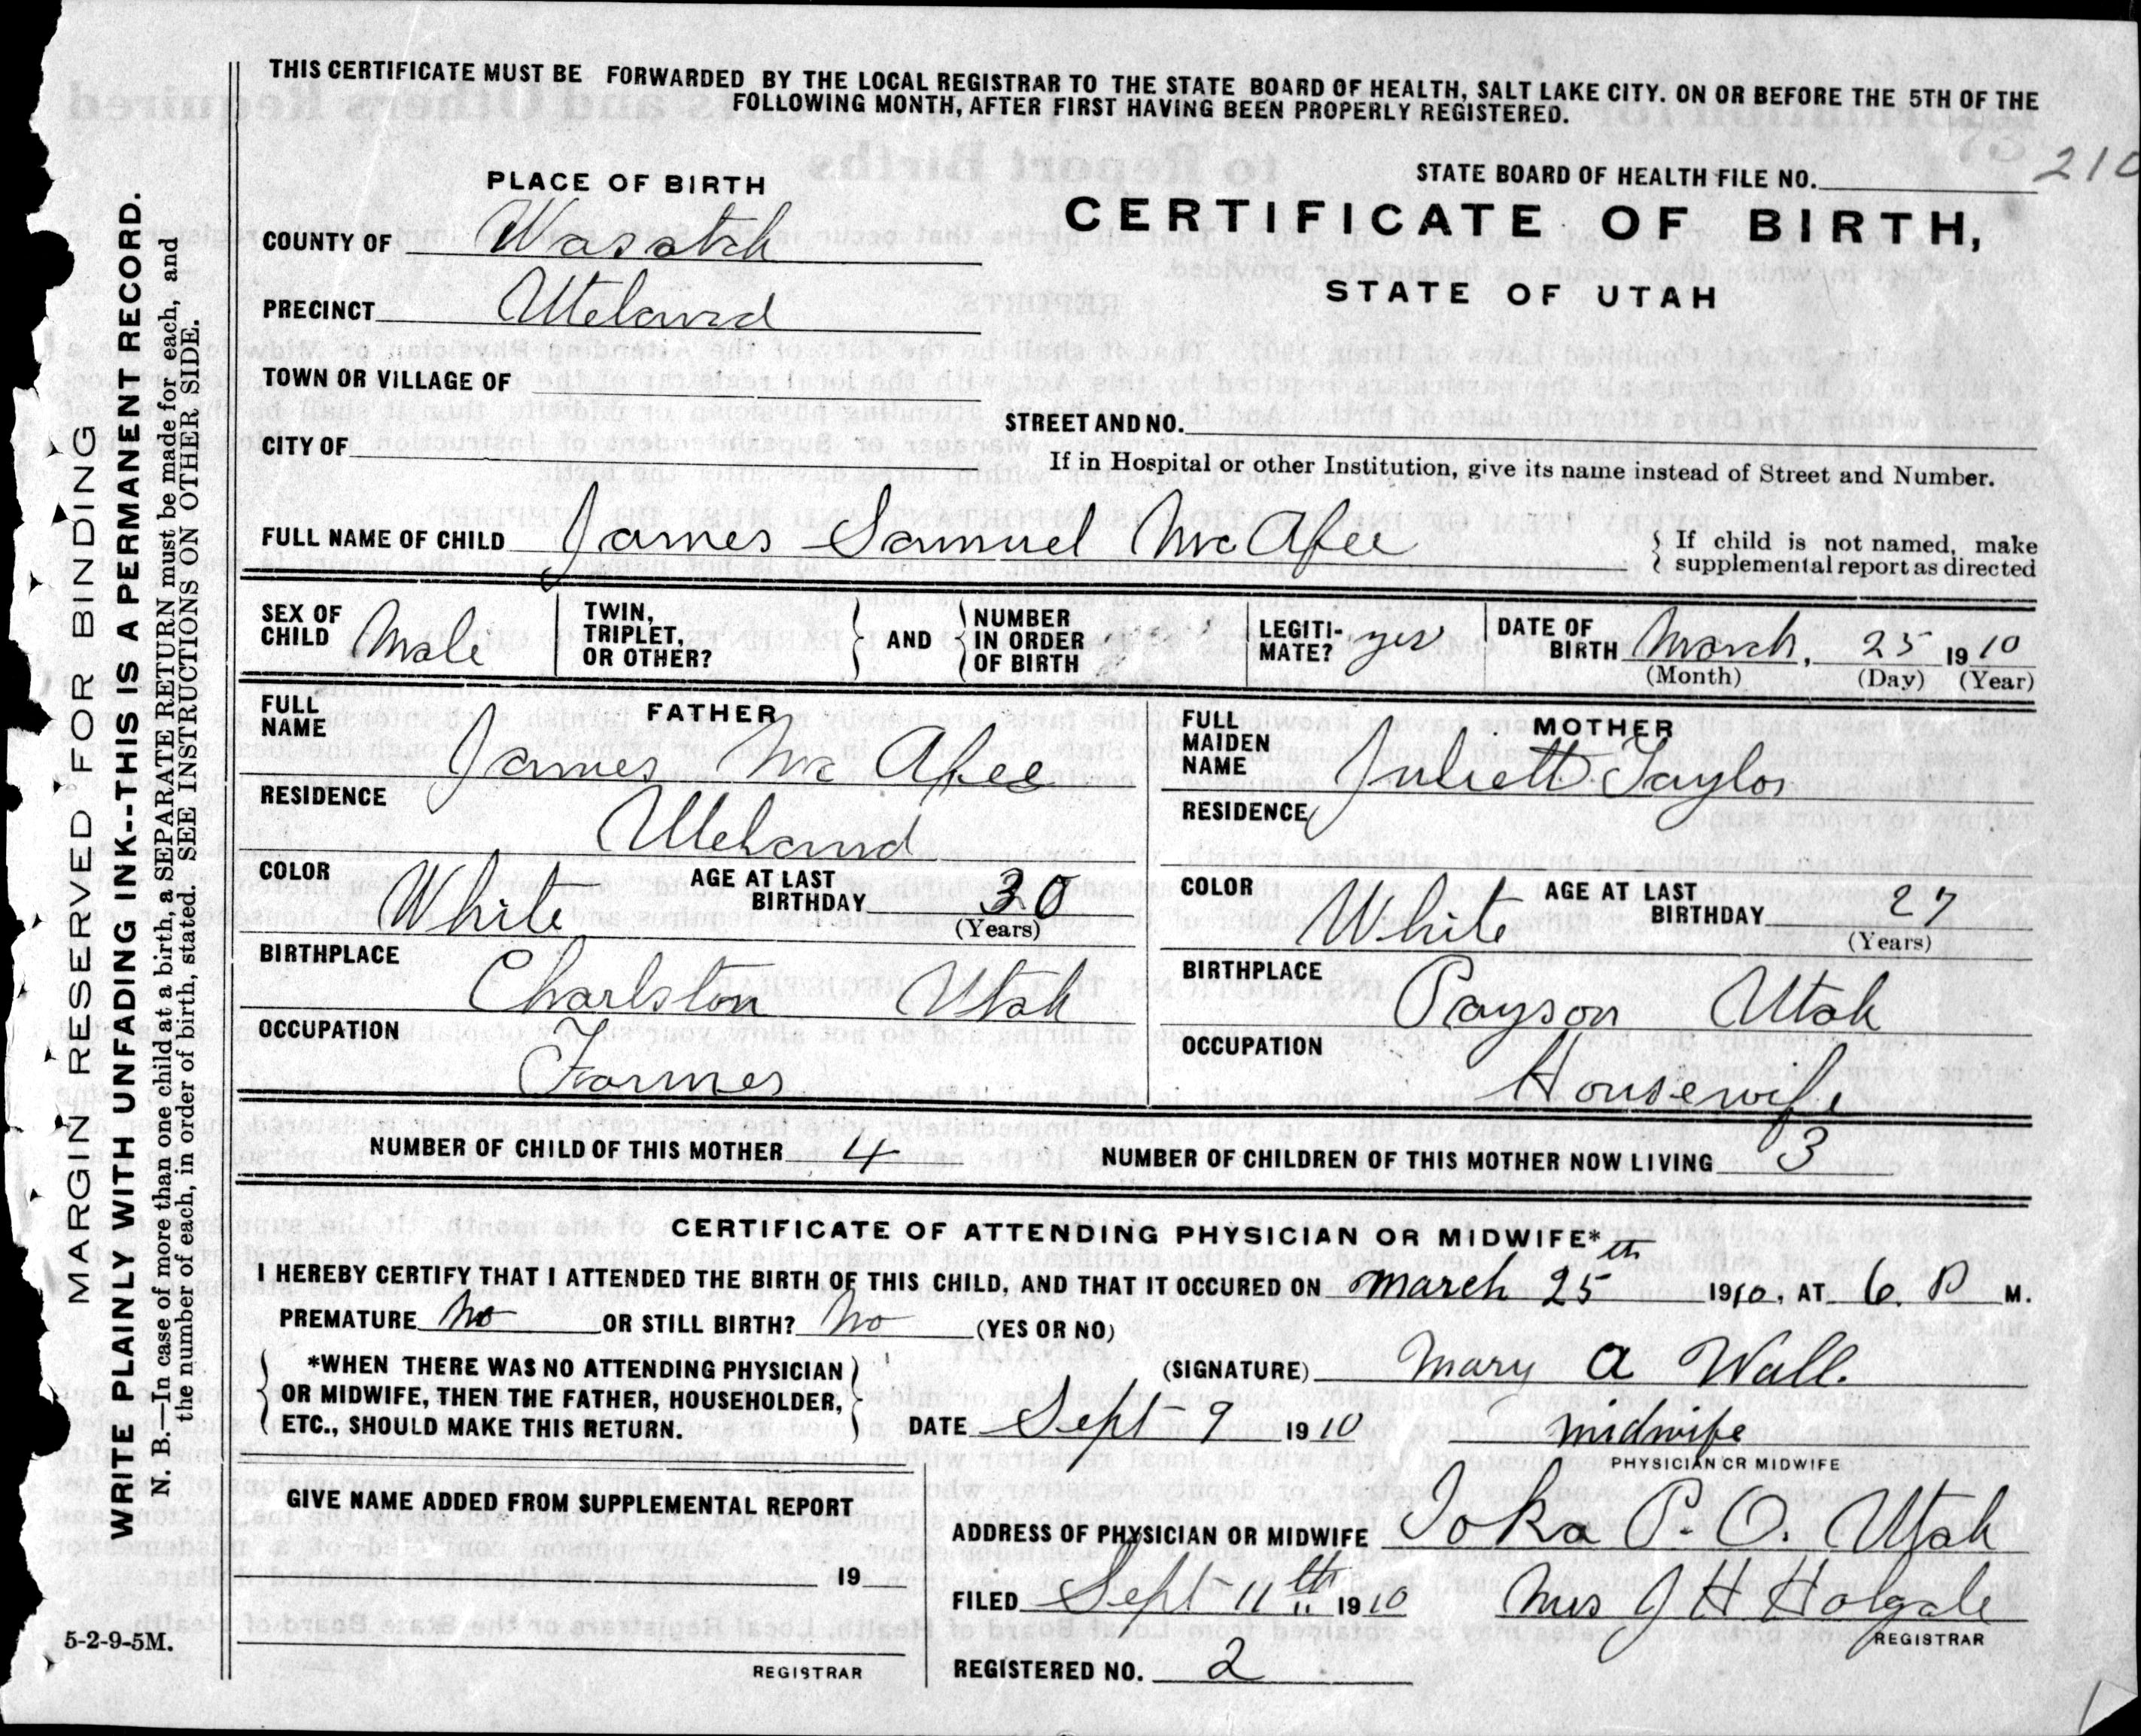 THIS CERTIFICATE MUST BE FORWARDED BY THE LOCAL REGISTRAR TO THE STATE BOARD OF HEALTH, SALT LAKE CITY. ON OR BEFORE THE 5TH OF THE
FOLLOWING MONTH, AFTER FIRST HAVING BEEN PROPERLY REGISTERED.
STATE BOARD OF HEALTH FILE NO. 210
CERTIFICATE OF BIRTH,
STATE OF UTAH
PLACE OF BIRTH
COUNTY OF Wasatch
PRECINCT Uteland
TOWN OR VILLAGE OF
CITY OF
STREET AND NO.
If in Hospital or other Institution, give its name instead of Street and Number.
FULL NAME OF CHILD James Samuel McAfee
If child is not named, make
supplemental report as directed
SEX OF CHILD Male
TWIN, TRIPLET, OR OTHER?
AND
NUMBER IN ORDER OF BIRTH
LEGITI-MATE? yes
DATE OF BIRTH March, 25 1910
(Month) (Day) (Year)
FATHER
FULL NAME James McAfee
RESIDENCE Uteland
COLOR White
AGE AT LAST BIRTHDAY 30
(Years)
BIRTHPLACE Charlston Utah
OCCUPATION Farmer
MOTHER
FULL MAIDEN NAME Juliett Taylor
RESIDENCE
COLOR White
AGE AT LAST BIRTHDAY 27
(Years)
BIRTHPLACE Payson Utah
OCCUPATION Housewife
NUMBER OF CHILD OF THIS MOTHER 4
NUMBER OF CHILDREN OF THIS MOTHER NOW LIVING 3
CERTIFICATE OF ATTENDING PHYSICIAN OR MIDWIFE*
I HEREBY CERTIFY THAT I ATTENDED THE BIRTH OF THIS CHILD, AND THAT IT OCCURED ON March 25th 1910, AT 6. P M.
PREMATURE No OR STILL BIRTH? No (YES OR NO)
*WHEN THERE WAS NO ATTENDING PHYSICIAN
OR MIDWIFE, THEN THE FATHER, HOUSEHOLDER,
ETC., SHOULD MAKE THIS RETURN.
(SIGNATURE) Mary A Wall.
DATE Sept 9 1910
midwife
PHYSICIAN OR MIDWIFE
GIVE NAME ADDED FROM SUPPLEMENTAL REPORT
19
REGISTRAR
ADDRESS OF PHYSICIAN OR MIDWIFE Ioka P.O. Utah
FILED Sept 11th 1910
Mrs J H Holgate
REGISTRAR
REGISTERED NO. 2
MARGIN RESERVED FOR BINDING
WRITE PLAINLY WITH UNFADING INK--THIS IS A PERMANENT RECORD.
N. B.—In case of more than one child at a birth, a SEPARATE RETURN must be made for each, and
the number of each, in order of birth, stated. SEE INSTRUCTIONS ON OTHER SIDE.
5-2-9-5M.